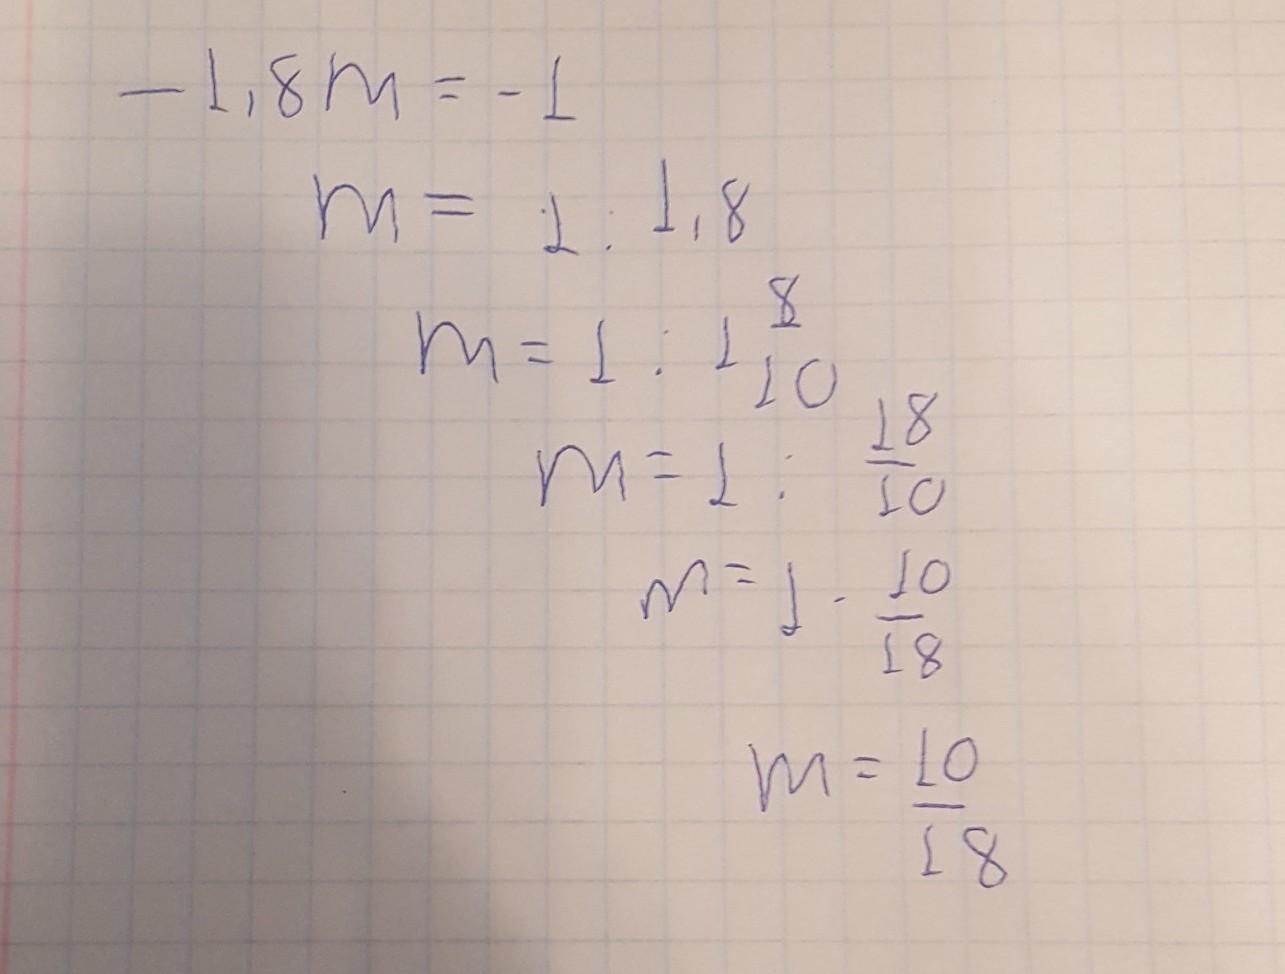 -1,8m = -1
m = 1 : 1,8
m = 1 : 1 8/10
m = 1 : 18/10
m = 1 · 10/18
m = 10/18